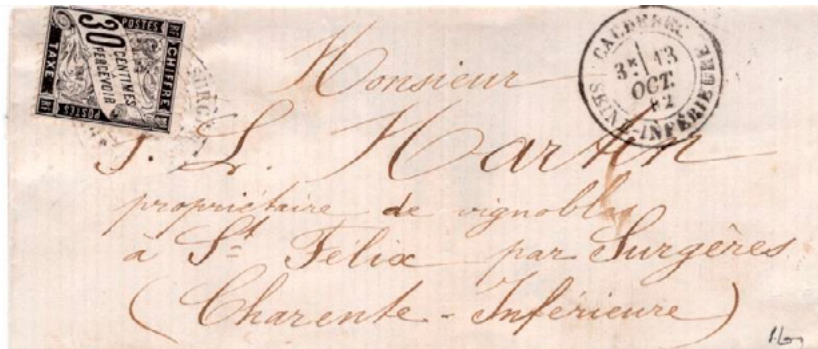 CHIFFRE
POSTES
30
CENTIMES
PERCEVOIR
TAXE
POSTES
CAUDEBEC
3E 13
OCT.
82
SEINE-INFÉRIEURE
Monsieur
J. L. Martin
propriétaire de vignobles
à St Félix par Surgères
(Charente-Inférieure)